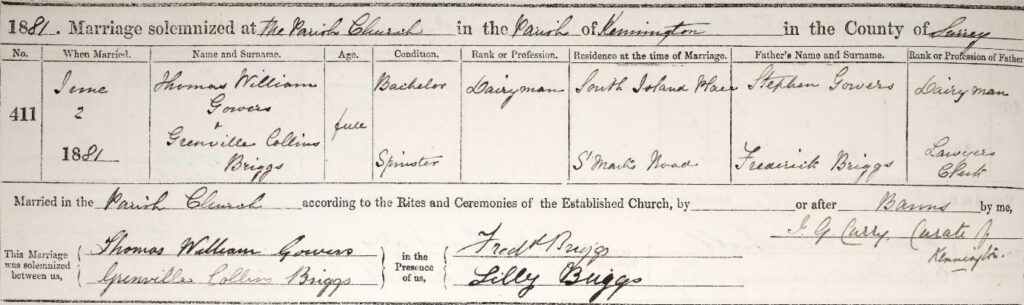 1881. Marriage solemnized at The Parish Church in the Parish of Kennington in the County of Surrey
No. When Married. Name and Surname. Age. Condition. Rank or Profession. Residence at the time of Marriage. Father's Name and Surname. Rank or Profession of Father
411 June 2 1881 Thomas William Gowers full Bachelor Dairyman South Island Place Stephen Gowers Dairyman
& Grenville Collins Briggs Spinster St Mark's Road Frederick Briggs Lawyers Clerk
Married in the Parish Church according to the Rites and Ceremonies of the Established Church, by or after Banns by me,
J. G. Curry, Curate of
Kennington.
This Marriage was solemnized between us, Thomas William Gowers in the Presence of us, Fredk Briggs
Grenville Collins Briggs Lilly Briggs